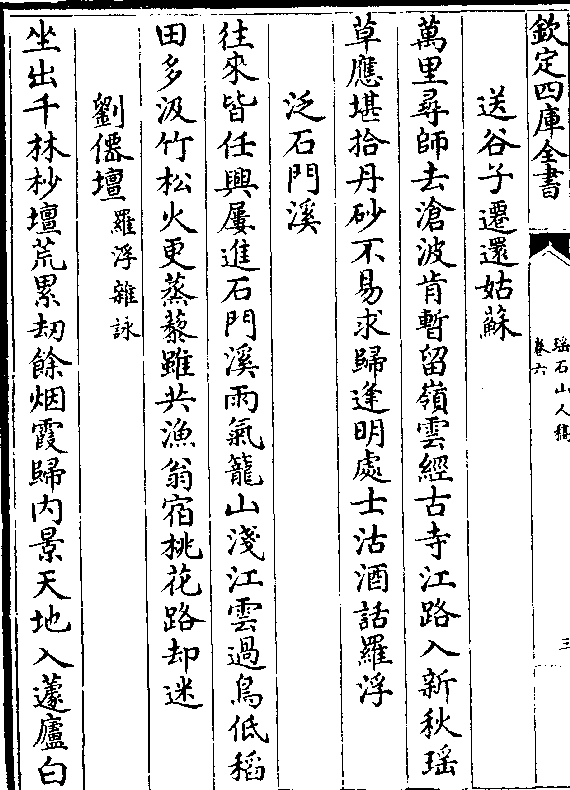 欽定四庫全書
瑶石山人稿
卷六
三
送谷子遷還姑蘇
萬里尋師去滄波肯暫留嶺雲經古寺江路入新秋瑶
草應堪拾丹砂不易求歸逢明處士沽酒話羅浮
泛石門溪
往來皆任興屢進石門溪雨氣籠山淺江雲過鳥低稻
田多汲竹松火更蒸藜雖共漁翁宿桃花路却迷
劉僊壇羅浮雜詠
坐出千林杪壇荒累刼餘烟霞歸内景天地入蘧廬白